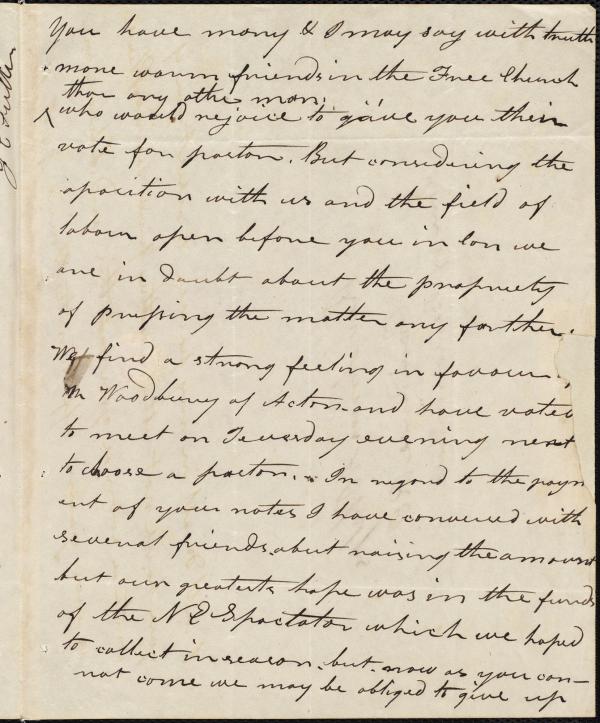 You have many & I may say with truth
more warm friends in the Free Church
than any other man,
who would rejoice to gaive you their
vote for paston. But considering the
aposition with us and the field of
labour open before you in lon we
are in doubt about the propriety
of pressing the matter any forther.
We find a strong feeling in favour
Mr Woodbury of Acton and have voted
to meet on Teuesday evening next
to choose a paston. In regard to the paym
ent of your notes I have convered with
several friends about raising the amount
but our greatest hope was in the funds
of the N E Spectator which we hoped
to collect in season but now as you can-
not come we may be obliged to give up